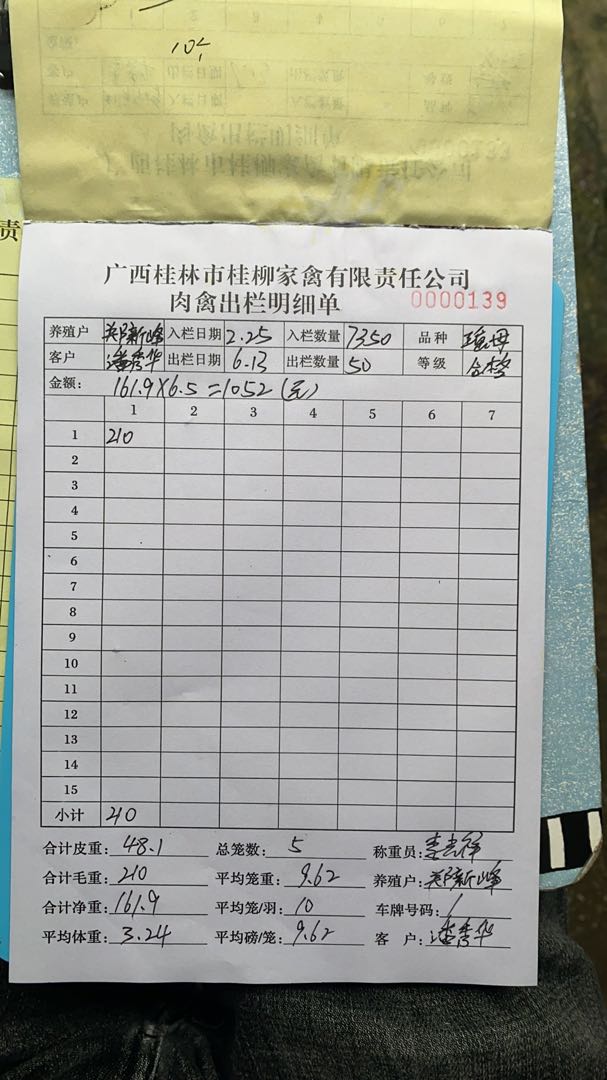 10
广西桂林市桂柳家禽有限责任公司
肉禽出栏明细单 0000139
养殖户 郑新峰 入栏日期 2.25 入栏数量 7350 品种
客户 潘秀华 出栏日期 6.13 出栏数量 50 等级 合格
金额: 161.9×6.5=1052(元)
1 2 3 4 5 6 7
1 210
2
3
4
5
6
7
8
9
10
11
12
13
14
15
小计 210
合计皮重: 48.1 总笼数: 5 称重员:
合计毛重: 210 平均笼重: 9.62 养殖户: 郑新峰
合计净重: 161.9 平均笼/羽: 10 车牌号码: /
平均体重: 3.24 平均磅/笼: 9.62 客户: 潘秀华